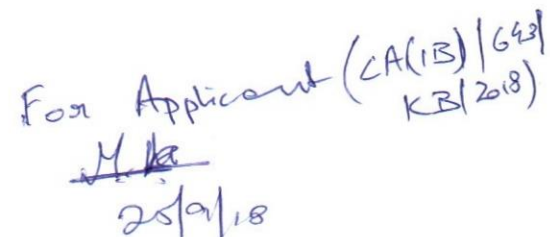 For Applicant (CA(IB)/643/
KB/2018)
25/9/18